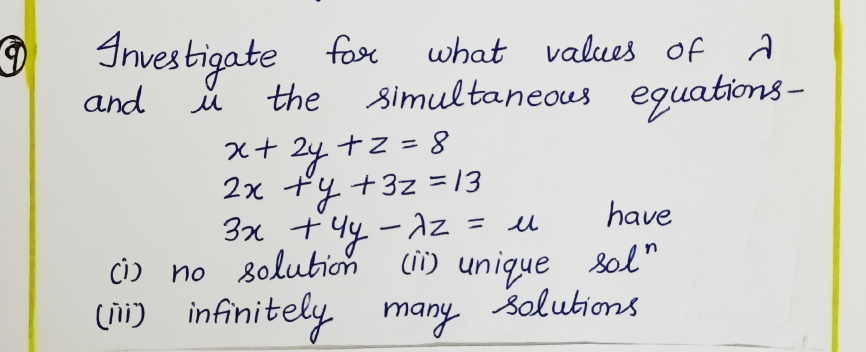 9 Investigate for what values of λ
and μ the simultaneous equations-
x + 2y + z = 8
2x + y + 3z = 13
3x + 4y - λz = μ have
(i) no solution (ii) unique solⁿ
(iii) infinitely many solutions